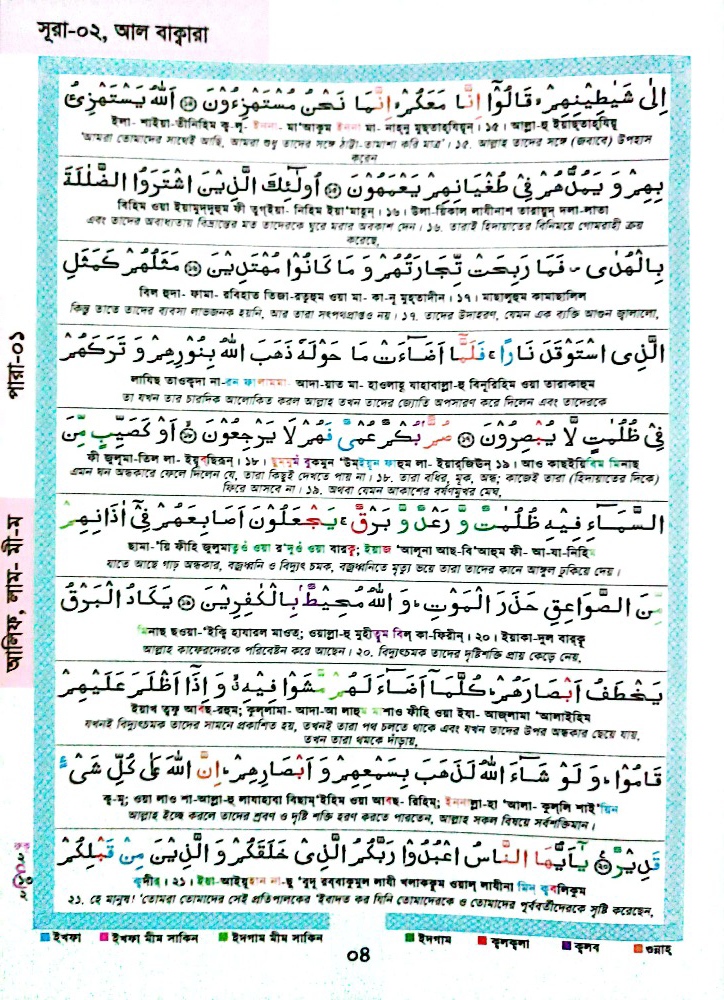 সূরা-০২, আল বাক্বারা
اِلٰى شَيٰطِيْنِهِمْ ۙ قَالُوْٓا اِنَّا مَعَكُمْ ۙ اِنَّمَا نَحْنُ مُسْتَهْزِءُوْنَ ﴿١٤﴾ اَللّٰهُ يَسْتَهْزِئُ
ইলা- শাইয়া-তীনিহিম ক্ব-লূ- ইন্না- মা'আকুম ইন্নামা- নাহ্নু মুছ্তাহ্যিয়ূন্। ১৫। আল্লা-হু ইয়াছ্তাহ্যিয়ু
'আমরা তোমাদের সাথেই আছি, আমরা শুধু তাদের সঙ্গে ঠাট্টা-তামাশা করি মাত্র'। ১৫. আল্লাহ তাদের সঙ্গে (জবাবে) উপহাস
করেন
بِهِمْ وَ يَمُدُّهُمْ فِيْ طُغْيَانِهِمْ يَعْمَهُوْنَ ﴿١٥﴾ اُولٰٓئِكَ الَّذِيْنَ اشْتَرَوُا الضَّلٰلَةَ
বিহিম ওয়া ইয়ামুদ্দুহুম ফী তুগ্ইয়া- নিহিম ইয়া'মাহূন্। ১৬। উলা-য়িকাল লাযীনাশ তারায়ুদ্ দলা-লাতা
এবং তাদের অবাধ্যতায় বিভ্রান্তের মত তাদেরকে ঘুরে মরার অবকাশ দেন। ১৬. তারাই হিদায়াতের বিনিময়ে গোমরাহী ক্রয়
করেছে,
بِالْهُدٰى ۪ فَمَا رَبِحَتْ تِّجَارَتُهُمْ وَ مَا كَانُوْا مُهْتَدِيْنَ ﴿١٦﴾ مَثَلُهُمْ كَمَثَلِ
বিল হুদা- ফামা- রবিহাত তিজা-রতুহুম ওয়া মা- কা-নূ মুহ্তাদীন। ১৭। মাছালুহুম কামাছালিল
কিন্তু তাতে তাদের ব্যবসা লাভজনক হয়নি, আর তারা সৎপথপ্রাপ্তও নয়। ১৭. তাদের উদাহরণ, যেমন এক ব্যক্তি আগুন জ্বালালো,
الَّذِى اسْتَوْقَدَ نَارًا ۚ فَلَمَّآ اَضَآءَتْ مَا حَوْلَهٗ ذَهَبَ اللّٰهُ بِنُوْرِهِمْ وَ تَرَكَهُمْ
লাযিছ্ তাওক্বদা না-রন ফালাম্মা- আদা-য়াত মা- হাওলাহূ যাহাবাল্লা-হু বিনূরিহিম ওয়া তারাকাহুম
তা যখন তার চারদিক আলোকিত করল আল্লাহ তখন তাদের জ্যোতি অপসারণ করে দিলেন এবং তাদেরকে
فِيْ ظُلُمٰتٍ لَّا يُبْصِرُوْنَ ﴿١٧﴾ صُمٌّۢ بُكْمٌ عُمْيٌ فَهُمْ لَا يَرْجِعُوْنَ ﴿١٨﴾ اَوْ كَصَيِّبٍ مِّنَ
ফী জুলুমা-তিল লা- ইয়ুব্ছিরূন্। ১৮। ছুম্মুম বুকমুন 'উমইয়ুন ফাহুম লা- ইয়ার্জিঊন্ ১৯। আও কাছ্ইয়িবিম মিনাছ
এমন ঘন অন্ধকারে ফেলে দিলেন যে, তারা কিছুই দেখতে পায় না। ১৮. তারা বধির, মূক, অন্ধ; কাজেই তারা (হিদায়াতের দিকে)
ফিরে আসবে না। ১৯. অথবা যেমন আকাশের বর্ষণমুখর মেঘ,
السَّمَآءِ فِيْهِ ظُلُمٰتٌ وَّ رَعْدٌ وَّ بَرْقٌ ۚ يَجْعَلُوْنَ اَصَابِعَهُمْ فِيْٓ اٰذَانِهِمْ
ছামা-'য়ি ফীহি জুলুমাতুওঁ ওয়া র'দুওঁ ওয়া বারক্বু; ইয়াজ্ব 'আলূনা আছ-বি'আহুম ফী- আ-যা-নিহিম
যাতে আছে গাঢ় অন্ধকার, বজ্রধ্বনি ও বিদ্যুৎ চমক, বজ্রধ্বনিতে মৃত্যু ভয়ে তারা তাদের কানে আঙ্গুল ঢুকিয়ে দেয়।
مِّنَ الصَّوَاعِقِ حَذَرَ الْمَوْتِ ۭ وَ اللّٰهُ مُحِيْطٌۢ بِالْكٰفِرِيْنَ ﴿١٩﴾ يَكَادُ الْبَرْقُ
মিনাছ ছওয়া-'ইক্বি হাযারল মাওত্; ওয়াল্লা-হু মুহীতুম বিল্ কা-ফিরীন্। ২০। ইয়াকা-দুল বারক্বু
আল্লাহ কাফেরদেরকে পরিবেষ্টন করে আছেন। ২০. বিদ্যুৎচমক তাদের দৃষ্টিশক্তি প্রায় কেড়ে নেয়,
يَخْطَفُ اَبْصَارَهُمْ ۭ كُلَّمَآ اَضَآءَ لَهُمْ مَّشَوْا فِيْهِ ۙ وَ اِذَآ اَظْلَمَ عَلَيْهِمْ
ইয়াখ ত্বফু আব্ছ-রহুম; কুল্লামা- আদা-আ লাহুম মাশাও ফীহি ওয়া ইযা- আজ্লামা 'আলাইহিম
যখনই বিদ্যুৎচমক তাদের সামনে প্রকাশিত হয়, তখনই তারা পথ চলতে থাকে এবং যখন তাদের উপর অন্ধকার ছেয়ে যায়,
তখন তারা থমকে দাঁড়ায়,
قَامُوْا ۭ وَ لَوْ شَآءَ اللّٰهُ لَذَهَبَ بِسَمْعِهِمْ وَ اَبْصَارِهِمْ ۭ اِنَّ اللّٰهَ عَلٰى كُلِّ شَيْءٍ
ক্ব-মূ; ওয়া লাও শা-আল্লা-হু লাযাহাবা বিছাম্'ইহিম ওয়া আবছ- রিহিম; ইন্নাল্লা-হা 'আলা- কুল্লি শাই'য়িন
আল্লাহ ইচ্ছে করলে তাদের শ্রবণ ও দৃষ্টি শক্তি হরণ করতে পারতেন, আল্লাহ সকল বিষয়ে সর্বশক্তিমান।
قَدِيْرٌ ﴿٢٠﴾ يٰٓاَيُّهَا النَّاسُ اعْبُدُوْا رَبَّكُمُ الَّذِيْ خَلَقَكُمْ وَ الَّذِيْنَ مِنْ قَبْلِكُمْ
ক্বদীর্। ২১। ইয়া-আইয়ুহান না-ছু 'বুদূ রব্বাকুমুল লাযী খলাকক্বুম ওয়াল্ লাযীনা মিন্ ক্ববলিকুম
২১. হে মানুষ! 'তোমরা তোমাদের সেই প্রতিপালকের 'ইবাদত কর যিনি তোমাদেরকে ও তোমাদের পূর্ববর্তীদেরকে সৃষ্টি করেছেন,
পারা-০১
আলিফ, লাম- মী-ম
রুকু
ইখফা ইখফা মীম সাকিন ইদগাম মীম সাকিন ইদগাম ক্বলক্বলা ক্বলব গুন্নাহ্
০৪